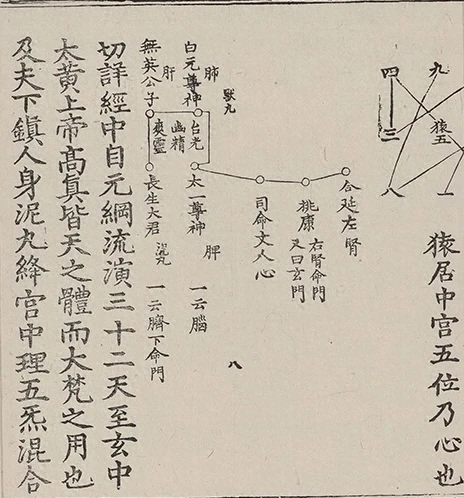 九
四
猿五
三
八
一
猿居中宮五位乃心也
合延左腎
桃康
右腎命門
又曰玄門
司命文人心
八
肺
白元尊神
台光
幽精
爽靈
太一尊神
脾
一云腦
肝
無英公子
長生大君
一云臍下命門
切詳經中自元綱流演三十二天至玄中
太黃上帝高真皆天之體而大梵之用也
及夫下鎮人身泥丸絳宮中理五炁混合